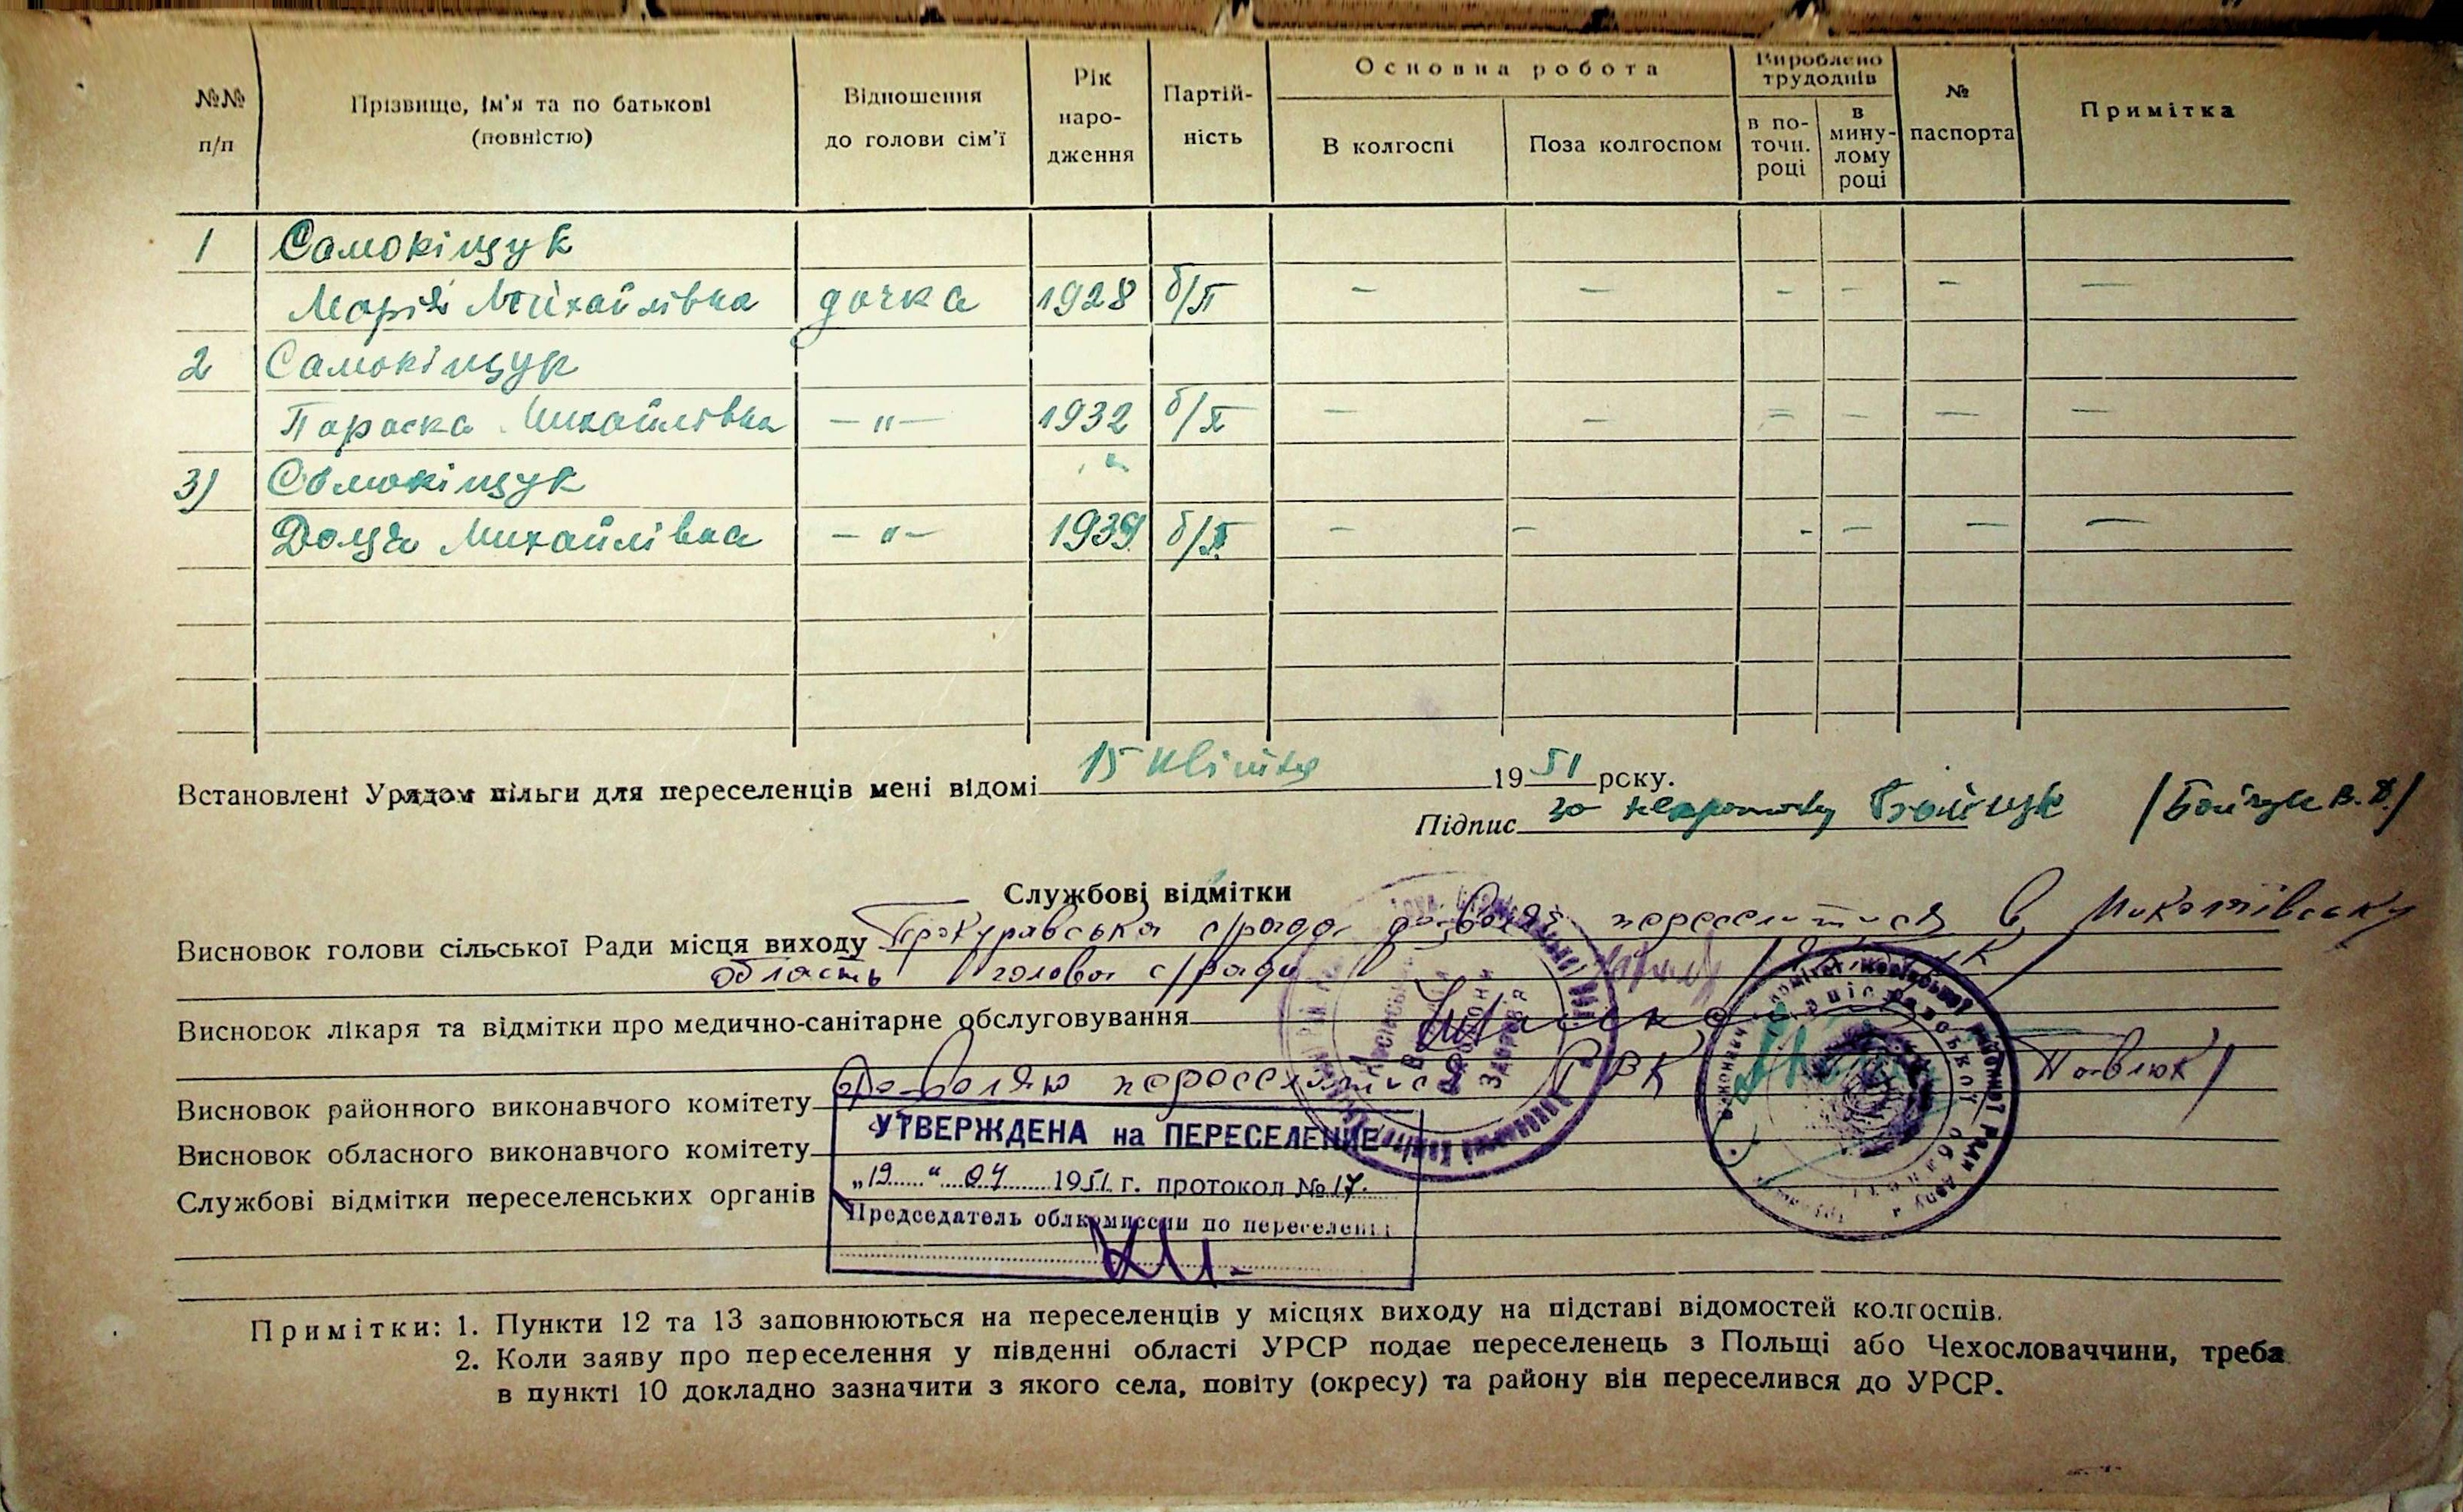 №№ п/п | Прізвище, ім'я та по батькові (повністю) | Відношення до голови сім'ї | Рік народження | Партійність | Основна робота | Вироблено трудоднів | № паспорта | Примітка
В колгоспі | Поза колгоспом | в поточн. році | в минулому році
1 Самокіщук
Марія Михайлівна дочка 1928 б/п — — - - - —
2 Самокіщук
Параска Михайлівна —"— 1932 б/п — — — — — —
3) Самокіщук
Доця Михайлівна —"— 1939 б/п — — - — — —
Встановлені Урядом пільги для переселенців мені відомі 15 квітня 1951 року.
Підпис за неграмотну Бойчук /Бойчук В. Д./
Службові відмітки
Висновок голови сільської Ради місця виходу Прокуравська с/рада дозволяє переселитися в Миколаївську
область голова с/ради
Висновок лікаря та відмітки про медично-санітарне обслуговування
Висновок районного виконавчого комітету Дозволяю переселитися РВК Павлюк/
УТВЕРЖДЕНА на ПЕРЕСЕЛЕНИЕ
Висновок обласного виконавчого комітету
„19" 04 1951 г. протокол № 17.
Службові відмітки переселенських органів
Председатель облкомиссии по переселени
Примітки: 1. Пункти 12 та 13 заповнюються на переселенців у місцях виходу на підставі відомостей колгоспів.
2. Коли заяву про переселення у південні області УРСР подає переселенець з Польщі або Чехословаччини, треба
в пункті 10 докладно зазначити з якого села, повіту (окресу) та району він переселився до УРСР.